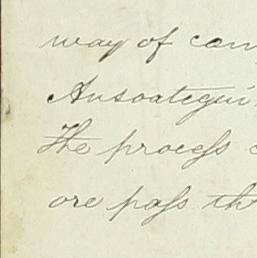 way of com
Ansoategui
The process
ore pass th